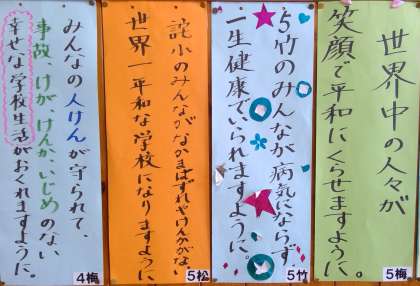 世界中の人々が
笑顔で平和にくらせますように。
5梅
5竹のみんなが病気にならず、
一生健康でいられますように。
5竹
詫小のみんながなかまはずれやけんかがない
世界一平和な学校になりますように
5松
みんなの人けんが守られて、
事故、けが、けんか、いじめのない
幸せな学校生活がおくれますように。
4梅